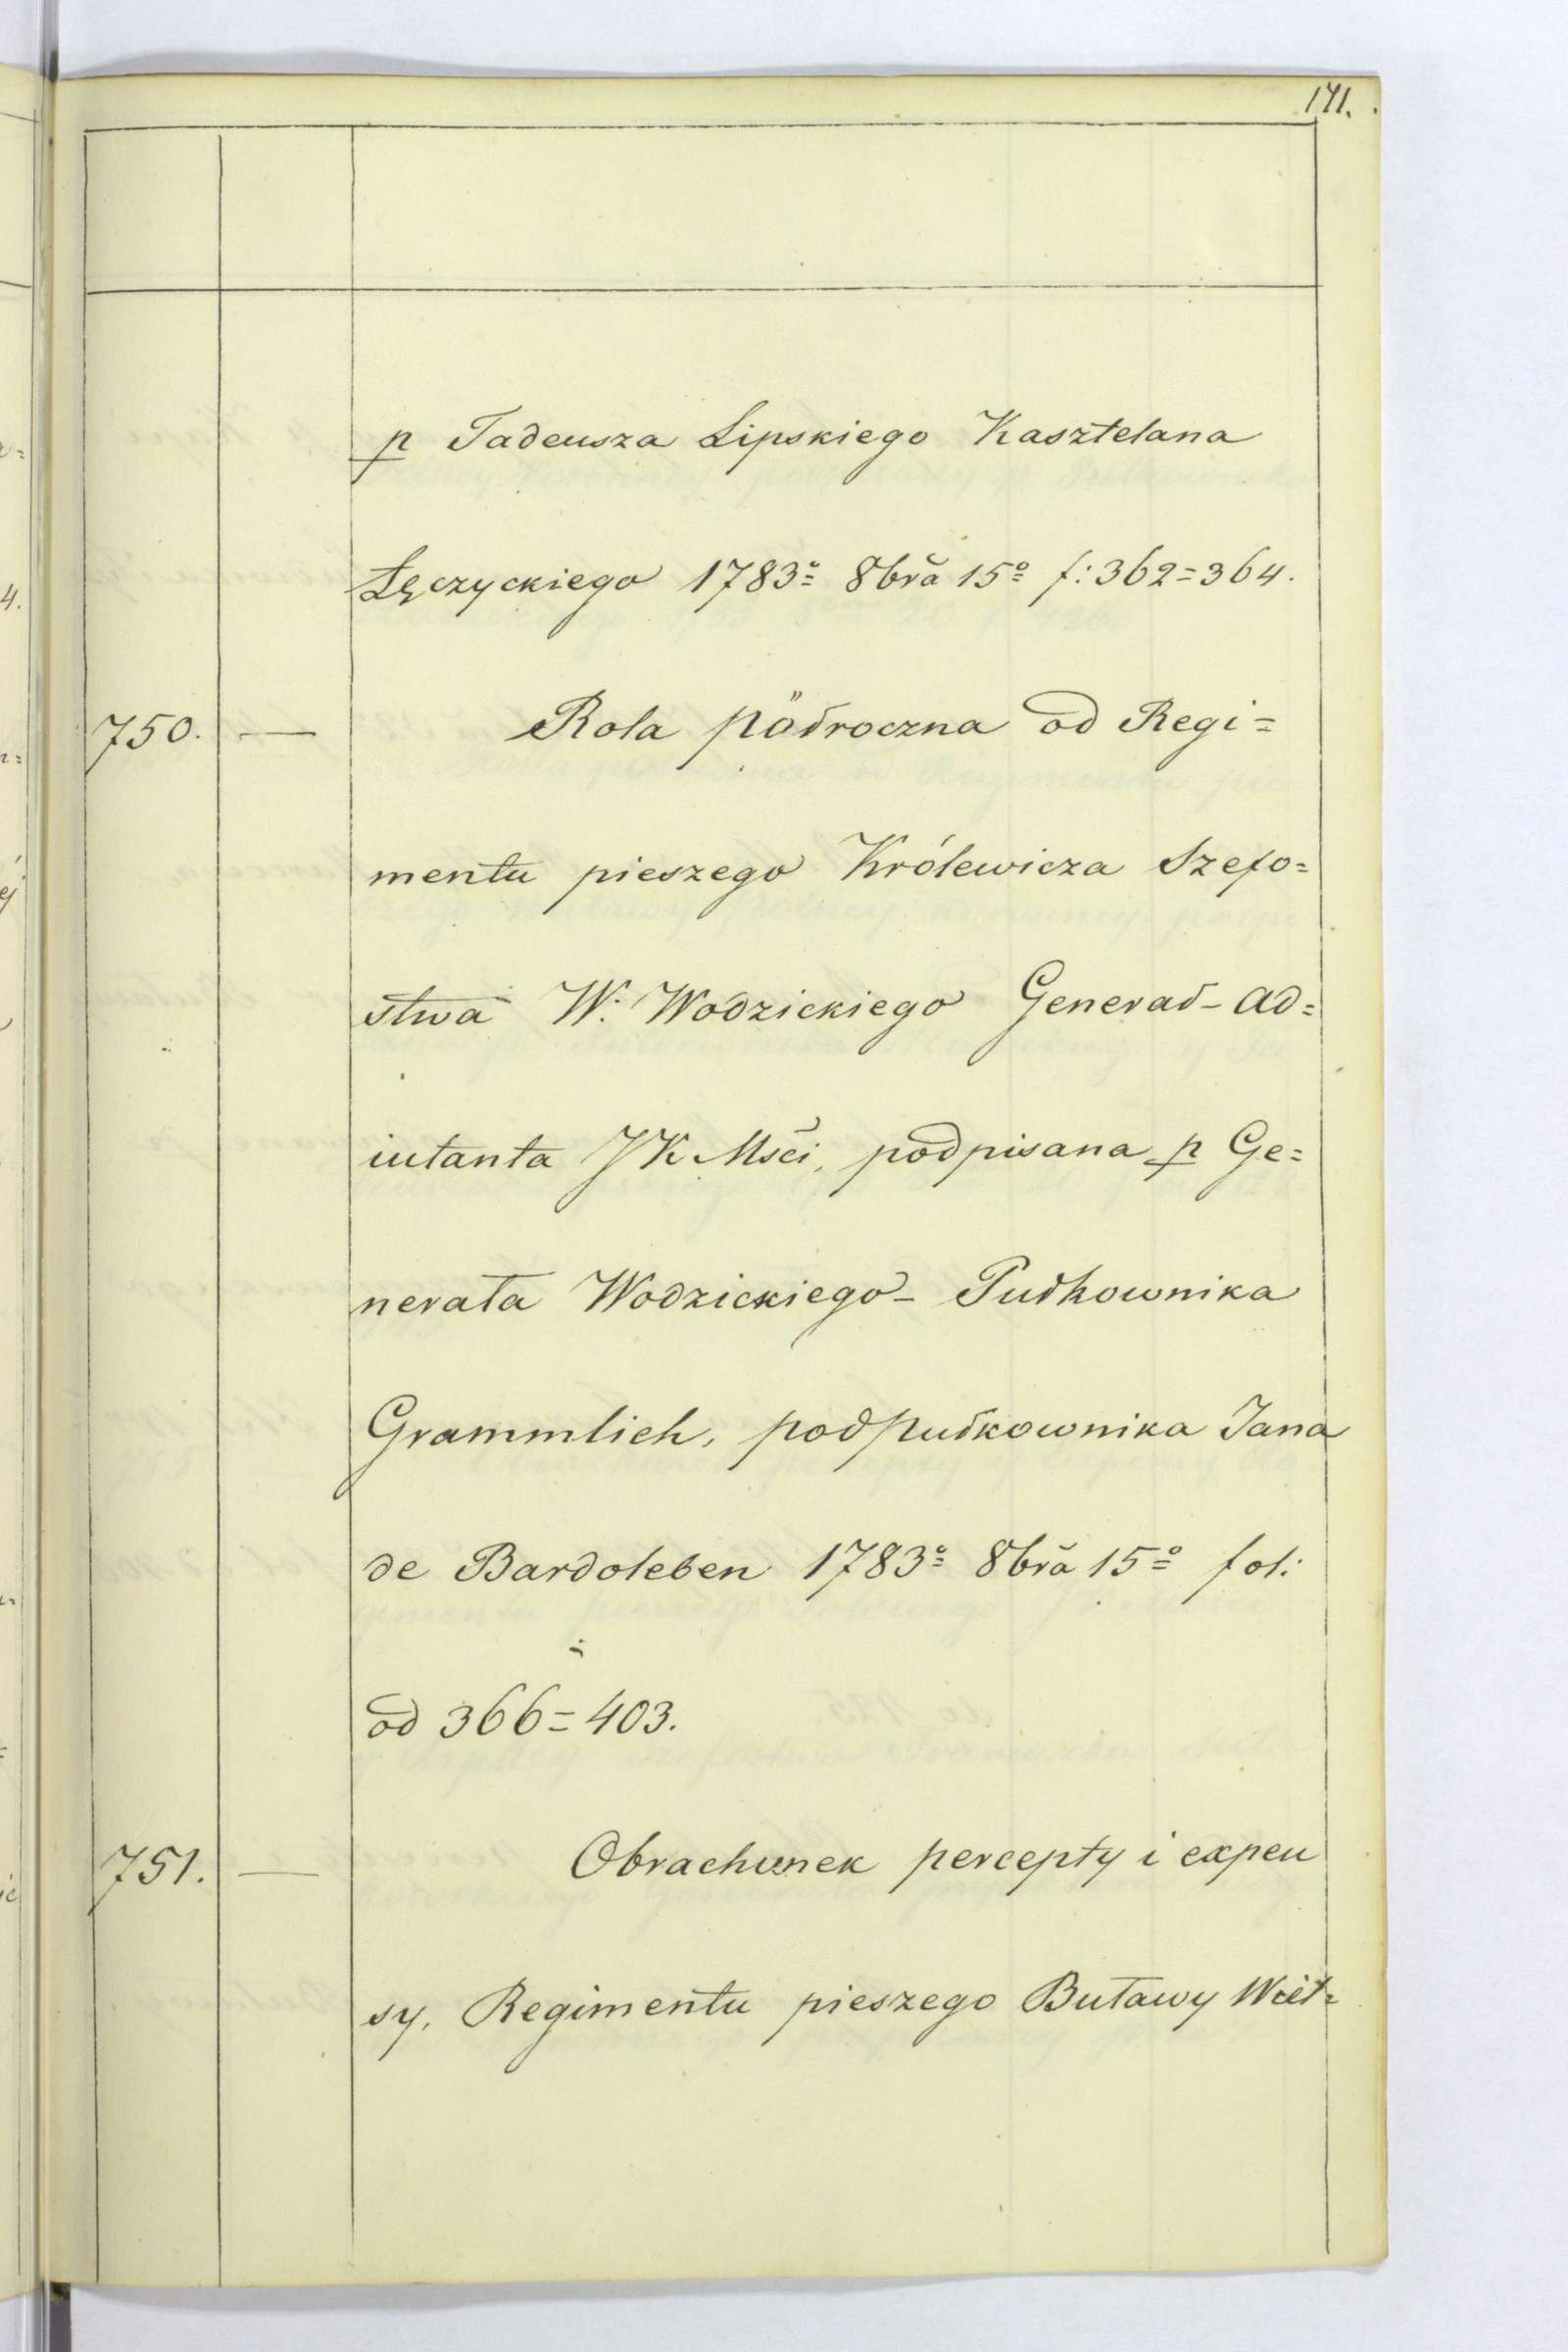 171.
p Tadeusza Lipskiego Kasztelana
Łęczyckiego 1783º 8brã 15º f: 362=364.
750. — Rola półroczna od Regi=
mentu pieszego Królewicza Szefo=
stwa W. Wodzickiego Generał-Ad=
iutanta JK Mści, podpisana p Ge=
nerała Wodzickiego - Pułkownika
Grammlich, podpułkownika Jana
de Bardoleben 1783º 8brã 15º fol:
od 366=403.
751. — Obrachunek percepty i expen
sy, Regimentu pieszego Buławy Wiel=